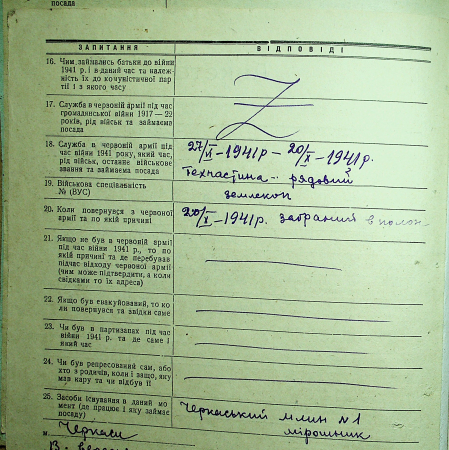 посада
ЗАПИТАННЯ ВІДПОВІДІ
16. Чим займались батьки до війни
1941 р. і в даний час та належ-
ність їх до комуністичної пар-
тії і з якого часу
17. Служба в червоній армії під час
громадянської війни 1917—22
років, рід військ та займаєма
посада
18. Служба в червоній армії під
час війни 1941 року, який час,
рід військ, останнє військове
звання та займаєма посада
27/VI - 1941 р - 20/X - 1941 р.
Техчастина - рядовий
19. Військова спеціявність
№ (ВУС)
землекоп
20. Коли повернувся з червоної
армії та по якій причині
20/X - 1941 р. забраний в полон
21. Якщо не був в червоній армії
під час війни 1941 р., то по
якій причині та де перебував
підчас відходу червоної армії
(чим може підтвердити, а коли
свідками то їх адреса)
22. Якщо був евакуйований, то ко-
ли повернувся та звідки саме
23. Чи був в партизанах під час
війни 1941 р. та де саме і
який час
24. Чи був репресований сам, або
хто з родичів, коли і защо, яку
мав кару та чи відбув її
25. Засоби існування в даний мо-
мент (де працює і яку займає
посаду)
Черкаський млин №1
мірошник
м. Черкаси